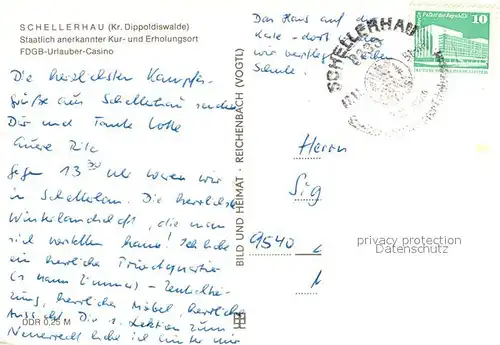 SCHELLERHAU (Kr. Dippoldiswalde)
Staatlich anerkannter Kur- und Erholungsort
FDGB-Urlauber-Casino
Die herzlichsten Kampfes-
grüße aus Schellerhau senden
Dir und Tante Lotte
Eure
Gegen 13 30 Uhr waren wir
in Schellerhau. Die herrlichste
Winterlandschaft, die man
sich vorstellen kann! Ich habe
ein herrliche Privatquartier
(2 Mann Zimmer) - Zentralhei-
zung, herrliche Möbel, herrliche
Aussicht. Die 1. Lektion zum
habe ich hinter mir
DDR 0,25 M
BILD UND HEIMAT · REICHENBACH (VOGTL)
Das Haus auf der
Karte - dort
wir
Schule.
SCHELLERHAU
8239
Palast der Republik
10
DEUTSCHE DEMOKRATISCHE REPUBLIK
Herrn
Sig
9540
privacy protection
Datenschutz